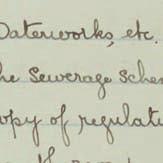 Waterworks, etc.
he Sewerage Sche
opy of regulati